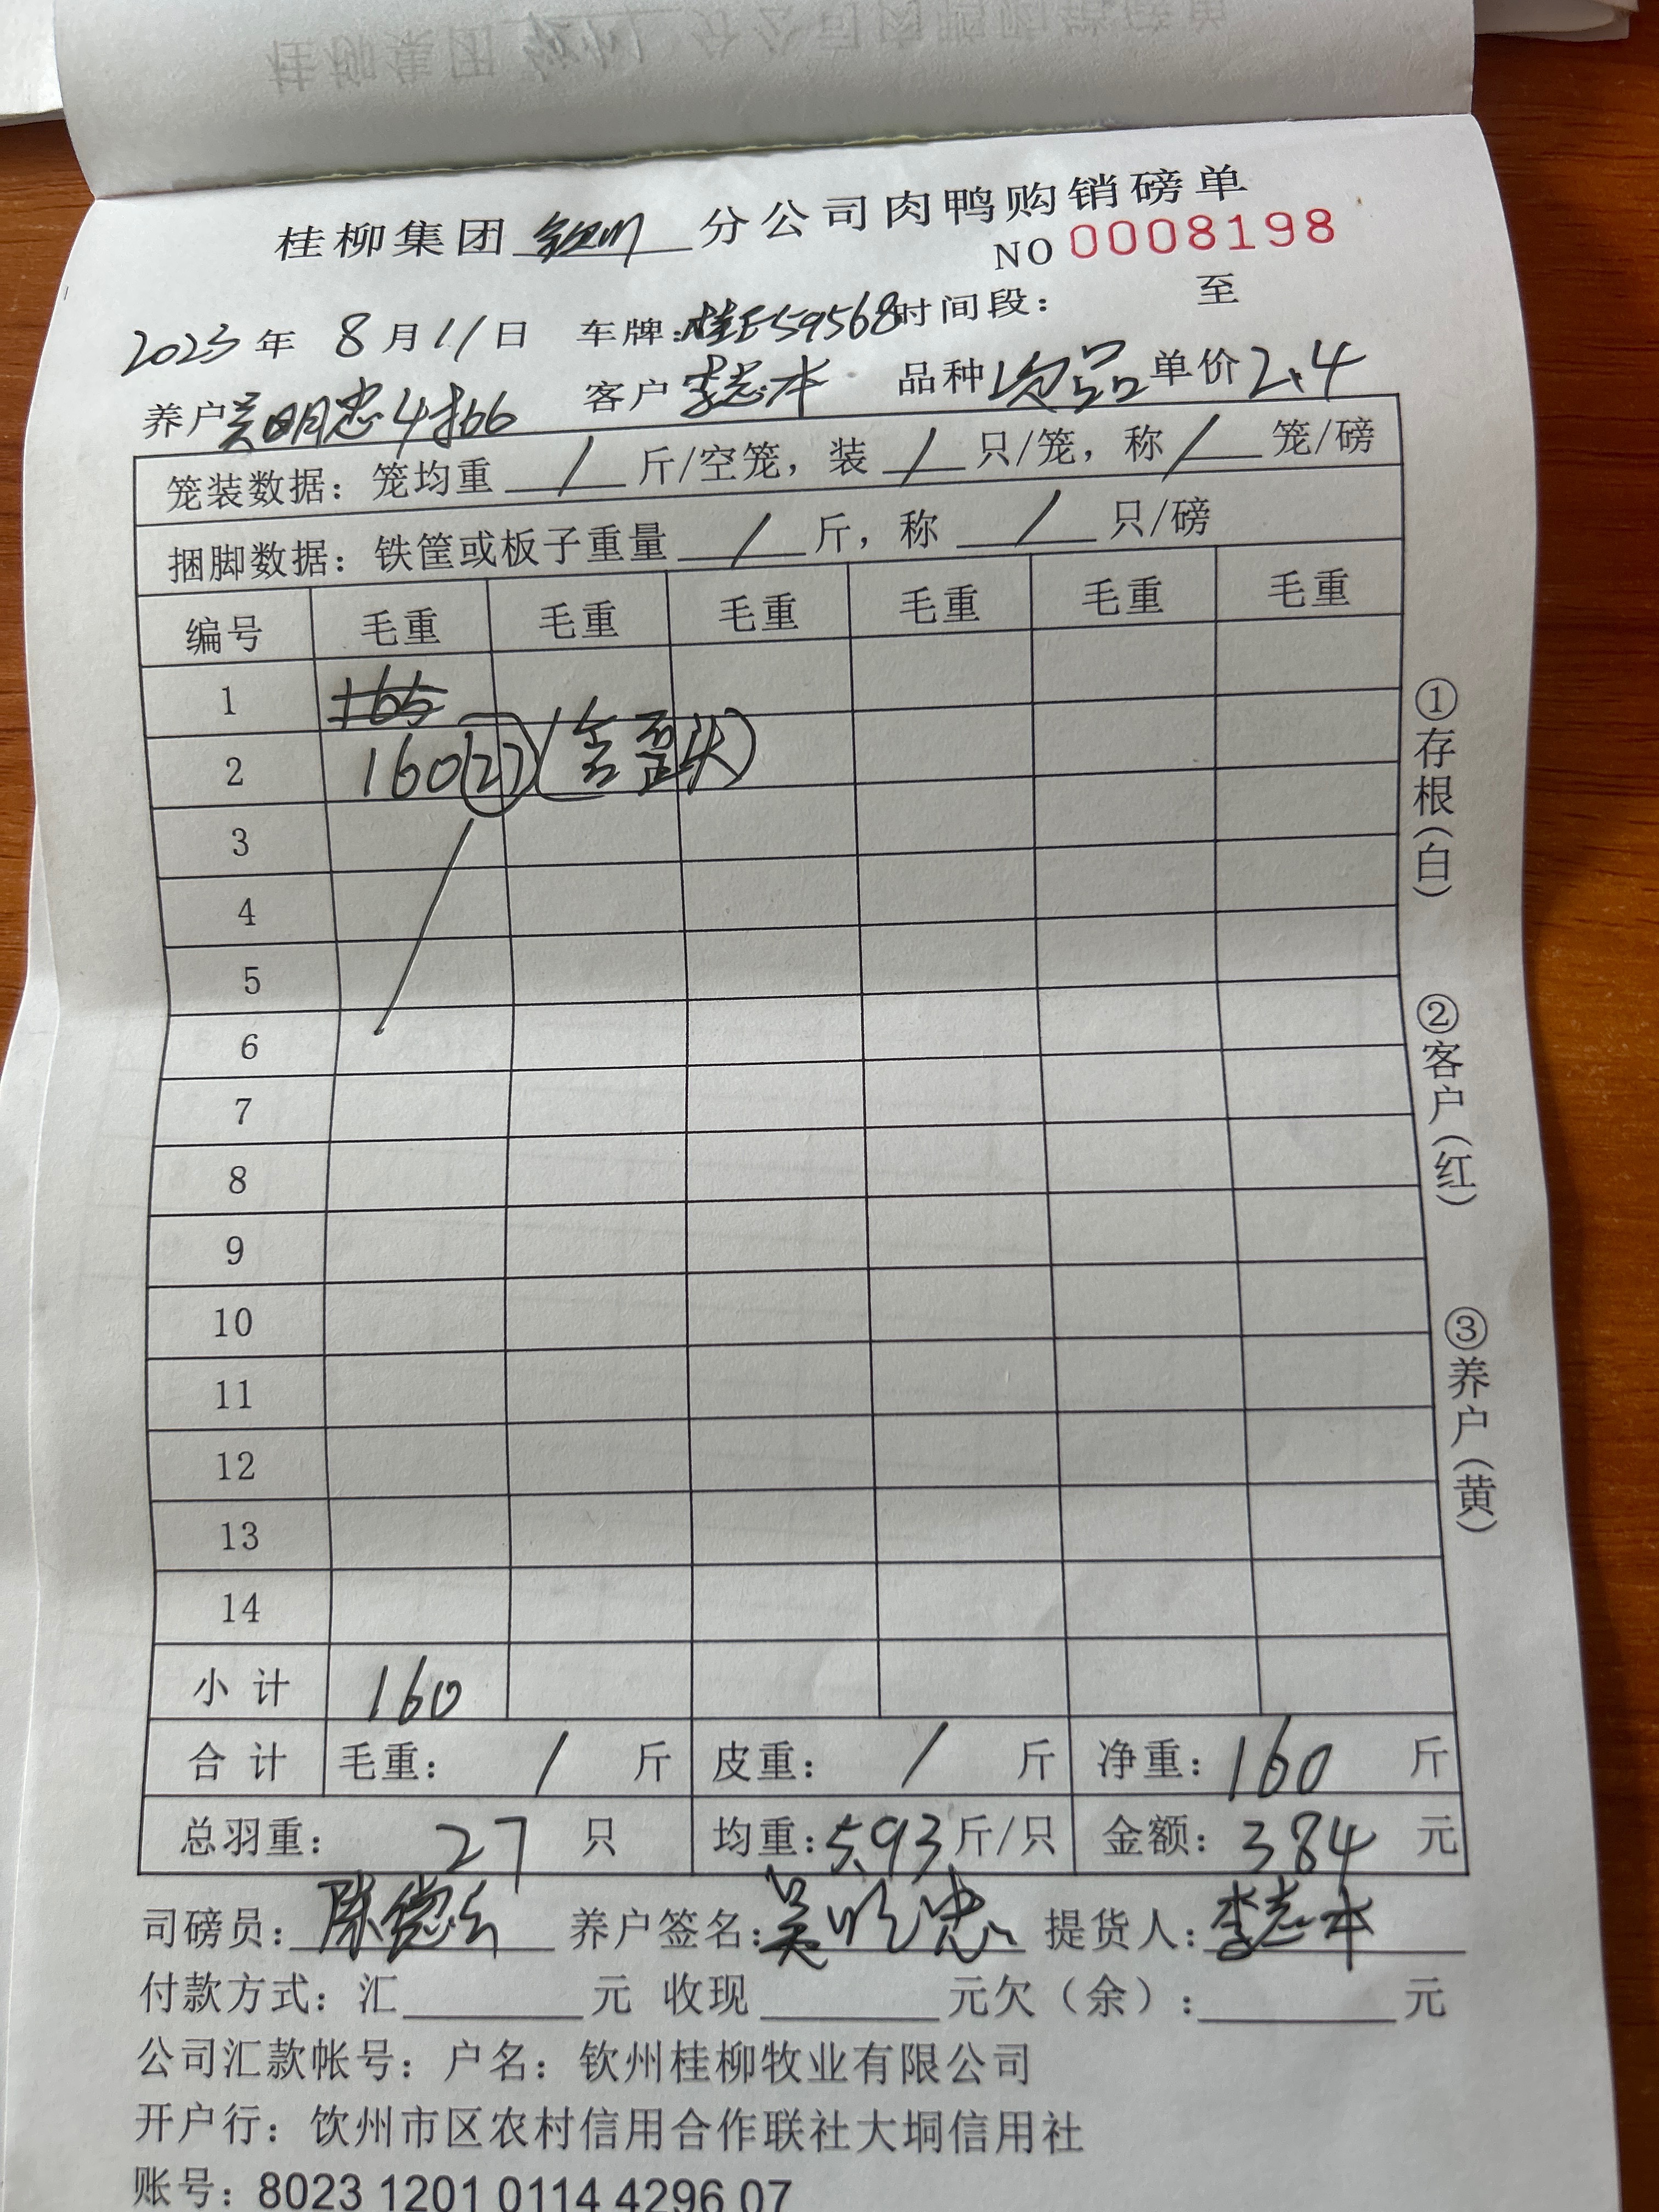 桂柳集团 钦州 分公司肉鸭购销磅单
NO 0008198
2023年 8月11日 车牌:桂E59568时间段: 至
养户吴明忠4批66 客户李志本 品种次品 单价2.4
笼装数据: 笼均重 / 斤/空笼, 装 / 只/笼, 称 / 笼/磅
捆脚数据: 铁筐或板子重量 / 斤, 称 / 只/磅
编号 毛重 毛重 毛重 毛重 毛重 毛重
1 165
2 160(27)(含歪头)
3
4
5
6
7
8
9
10
11
12
13
14
小计 160
合计 毛重: / 斤 皮重: / 斤 净重: 160 斤
总羽重: 27 只 均重:5.93斤/只 金额: 384 元
司磅员: 养户签名:吴明忠 提货人:李志本
付款方式: 汇 元 收现 元欠(余): 元
公司汇款帐号: 户名: 钦州桂柳牧业有限公司
开户行: 饮州市区农村信用合作联社大垌信用社
账号: 8023 1201 0114 4296 07
①存根(白)
②客户(红)
③养户(黄)